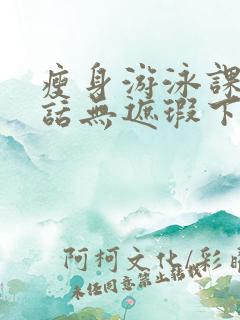 瘦身游泳課
話無遮瑕下
阿柯文化/彩
未經同意禁止轉載